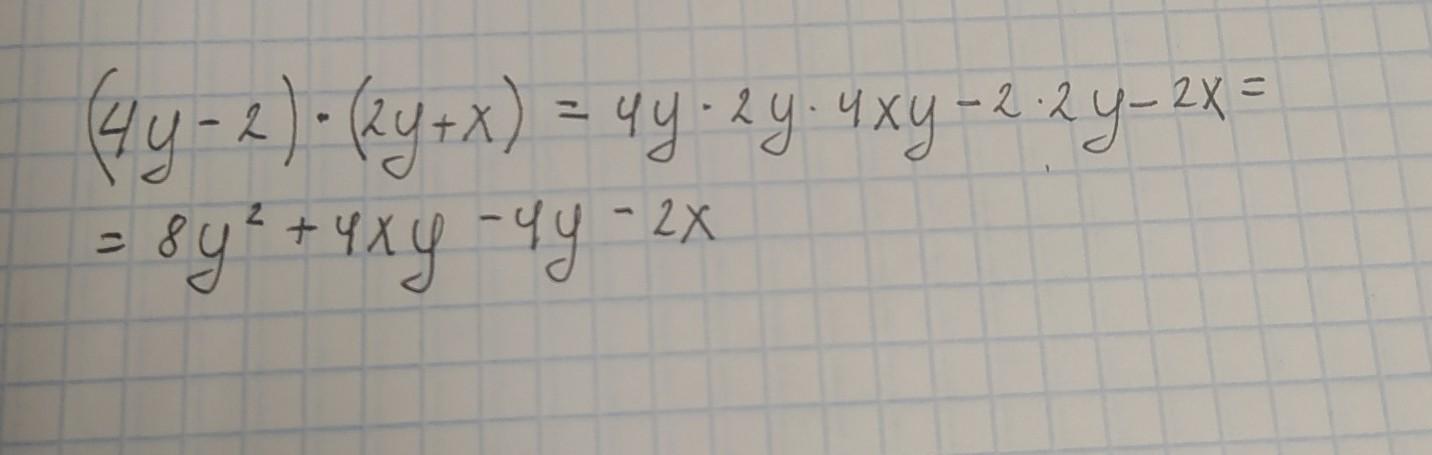 (4y-2)·(2y+x) = 4y·2y·4xy-2·2y-2x=
= 8y²+4xy-4y-2x